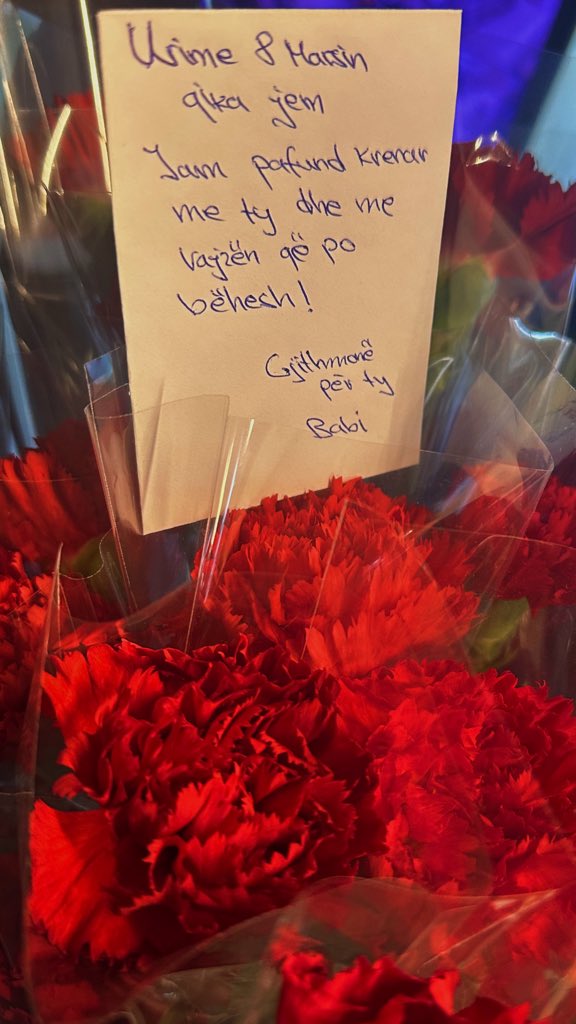 Urime 8 Marsin
qika jem
Jam pafund krenar
me ty dhe me
vajzën që po
bëhesh!
Gjithmonë
për ty
Babi